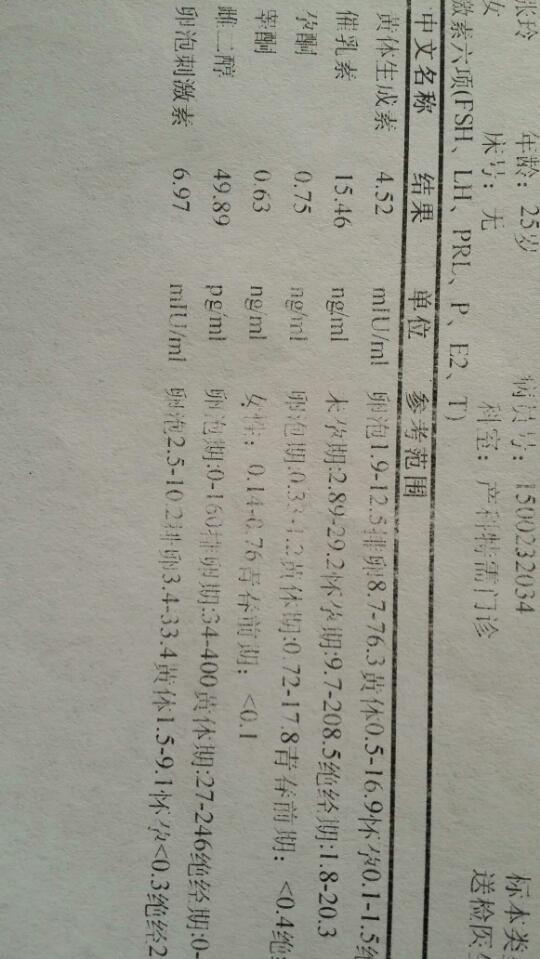 张玲 年龄：25岁 病员号：1500232034 标本类
女 床号：无 科室：产科特需门诊 送检医生
激素六项(FSH、LH、PRL、P、E2、T)
中文名称 结果 单位 参考范围
黄体生成素 4.52 mIU/ml 卵泡1.9-12.5排卵8.7-76.3黄体0.5-16.9怀孕0.1-1.5绝
催乳素 15.46 ng/ml 未孕期:2.89-29.2怀孕期:9.7-208.5绝经期:1.8-20.3
孕酮 0.75 ng/ml 卵泡期:0.33-1.2黄体期:0.72-17.8青春前期：<0.4绝
睾酮 0.63 ng/ml 女性：0.14-0.76青春前期：<0.1
雌二醇 49.89 pg/ml 卵泡期:0-160排卵期:34-400黄体期:27-246绝经期:0-
卵泡刺激素 6.97 mIU/ml 卵泡2.5-10.2排卵3.4-33.4黄体1.5-9.1怀孕<0.3绝经2